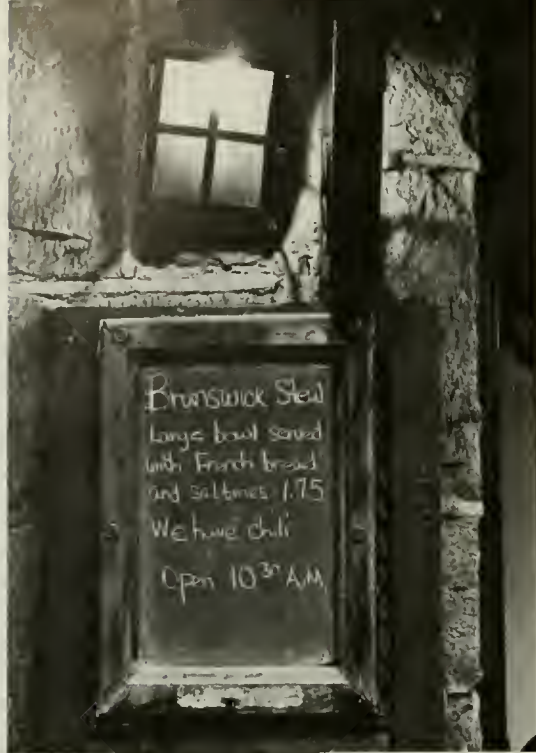 Brunswick Stew
Large bowl served
with French bread
and saltines 1.75
We have chili
Open 10 30 A.M.